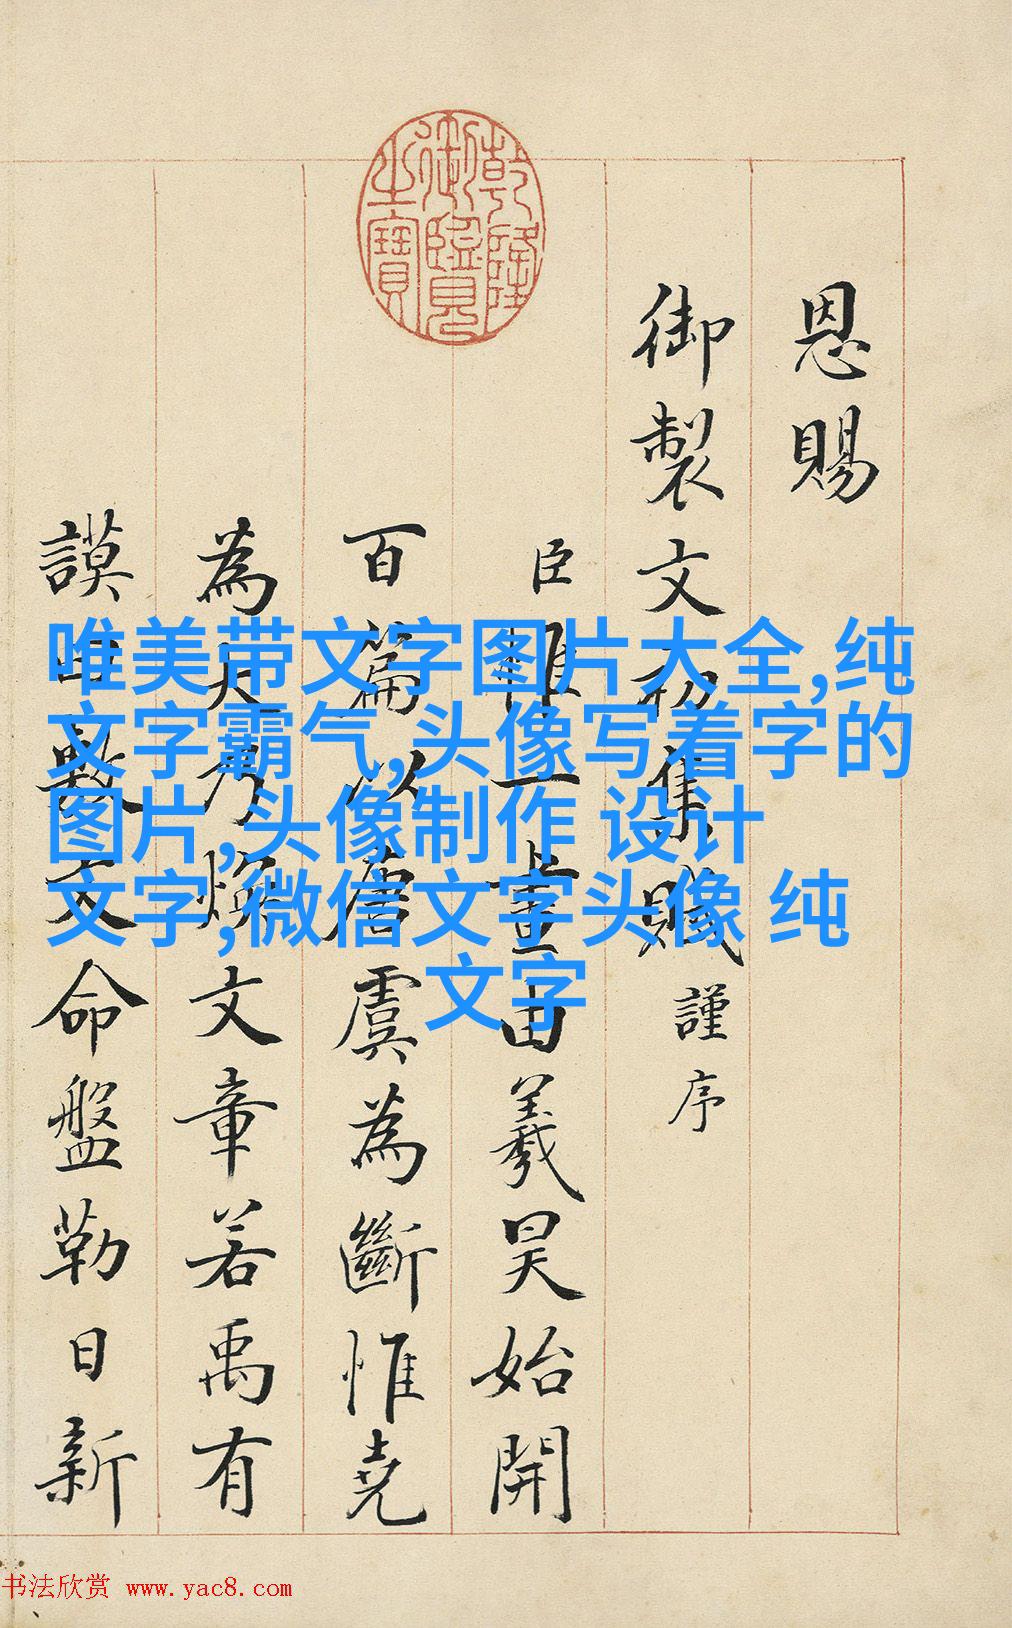 乾隆
御覽
之寶
恩賜
御製文初集謹序
臣惟一畫由羲昊始開
百篇以唐虞為斷惟堯
為大乃煥文章若禹有
謨曰敷文命盤勒日新
唯美带文字图片大全,纯
文字霸气,头像写着字的
图片,头像制作 设计
文字,微信文字头像 纯
文字
书法欣赏 www.yac8.com